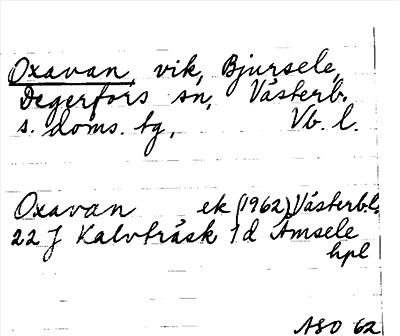 Oxavan, vik, Bjursele,
Degerfors sn, Västerb.
s. doms. tg, Vb. l.
Oxavan ek (1962) Västerb.l.
22 J Kalvträsk 1d Åmsele
hpl
ASO 62